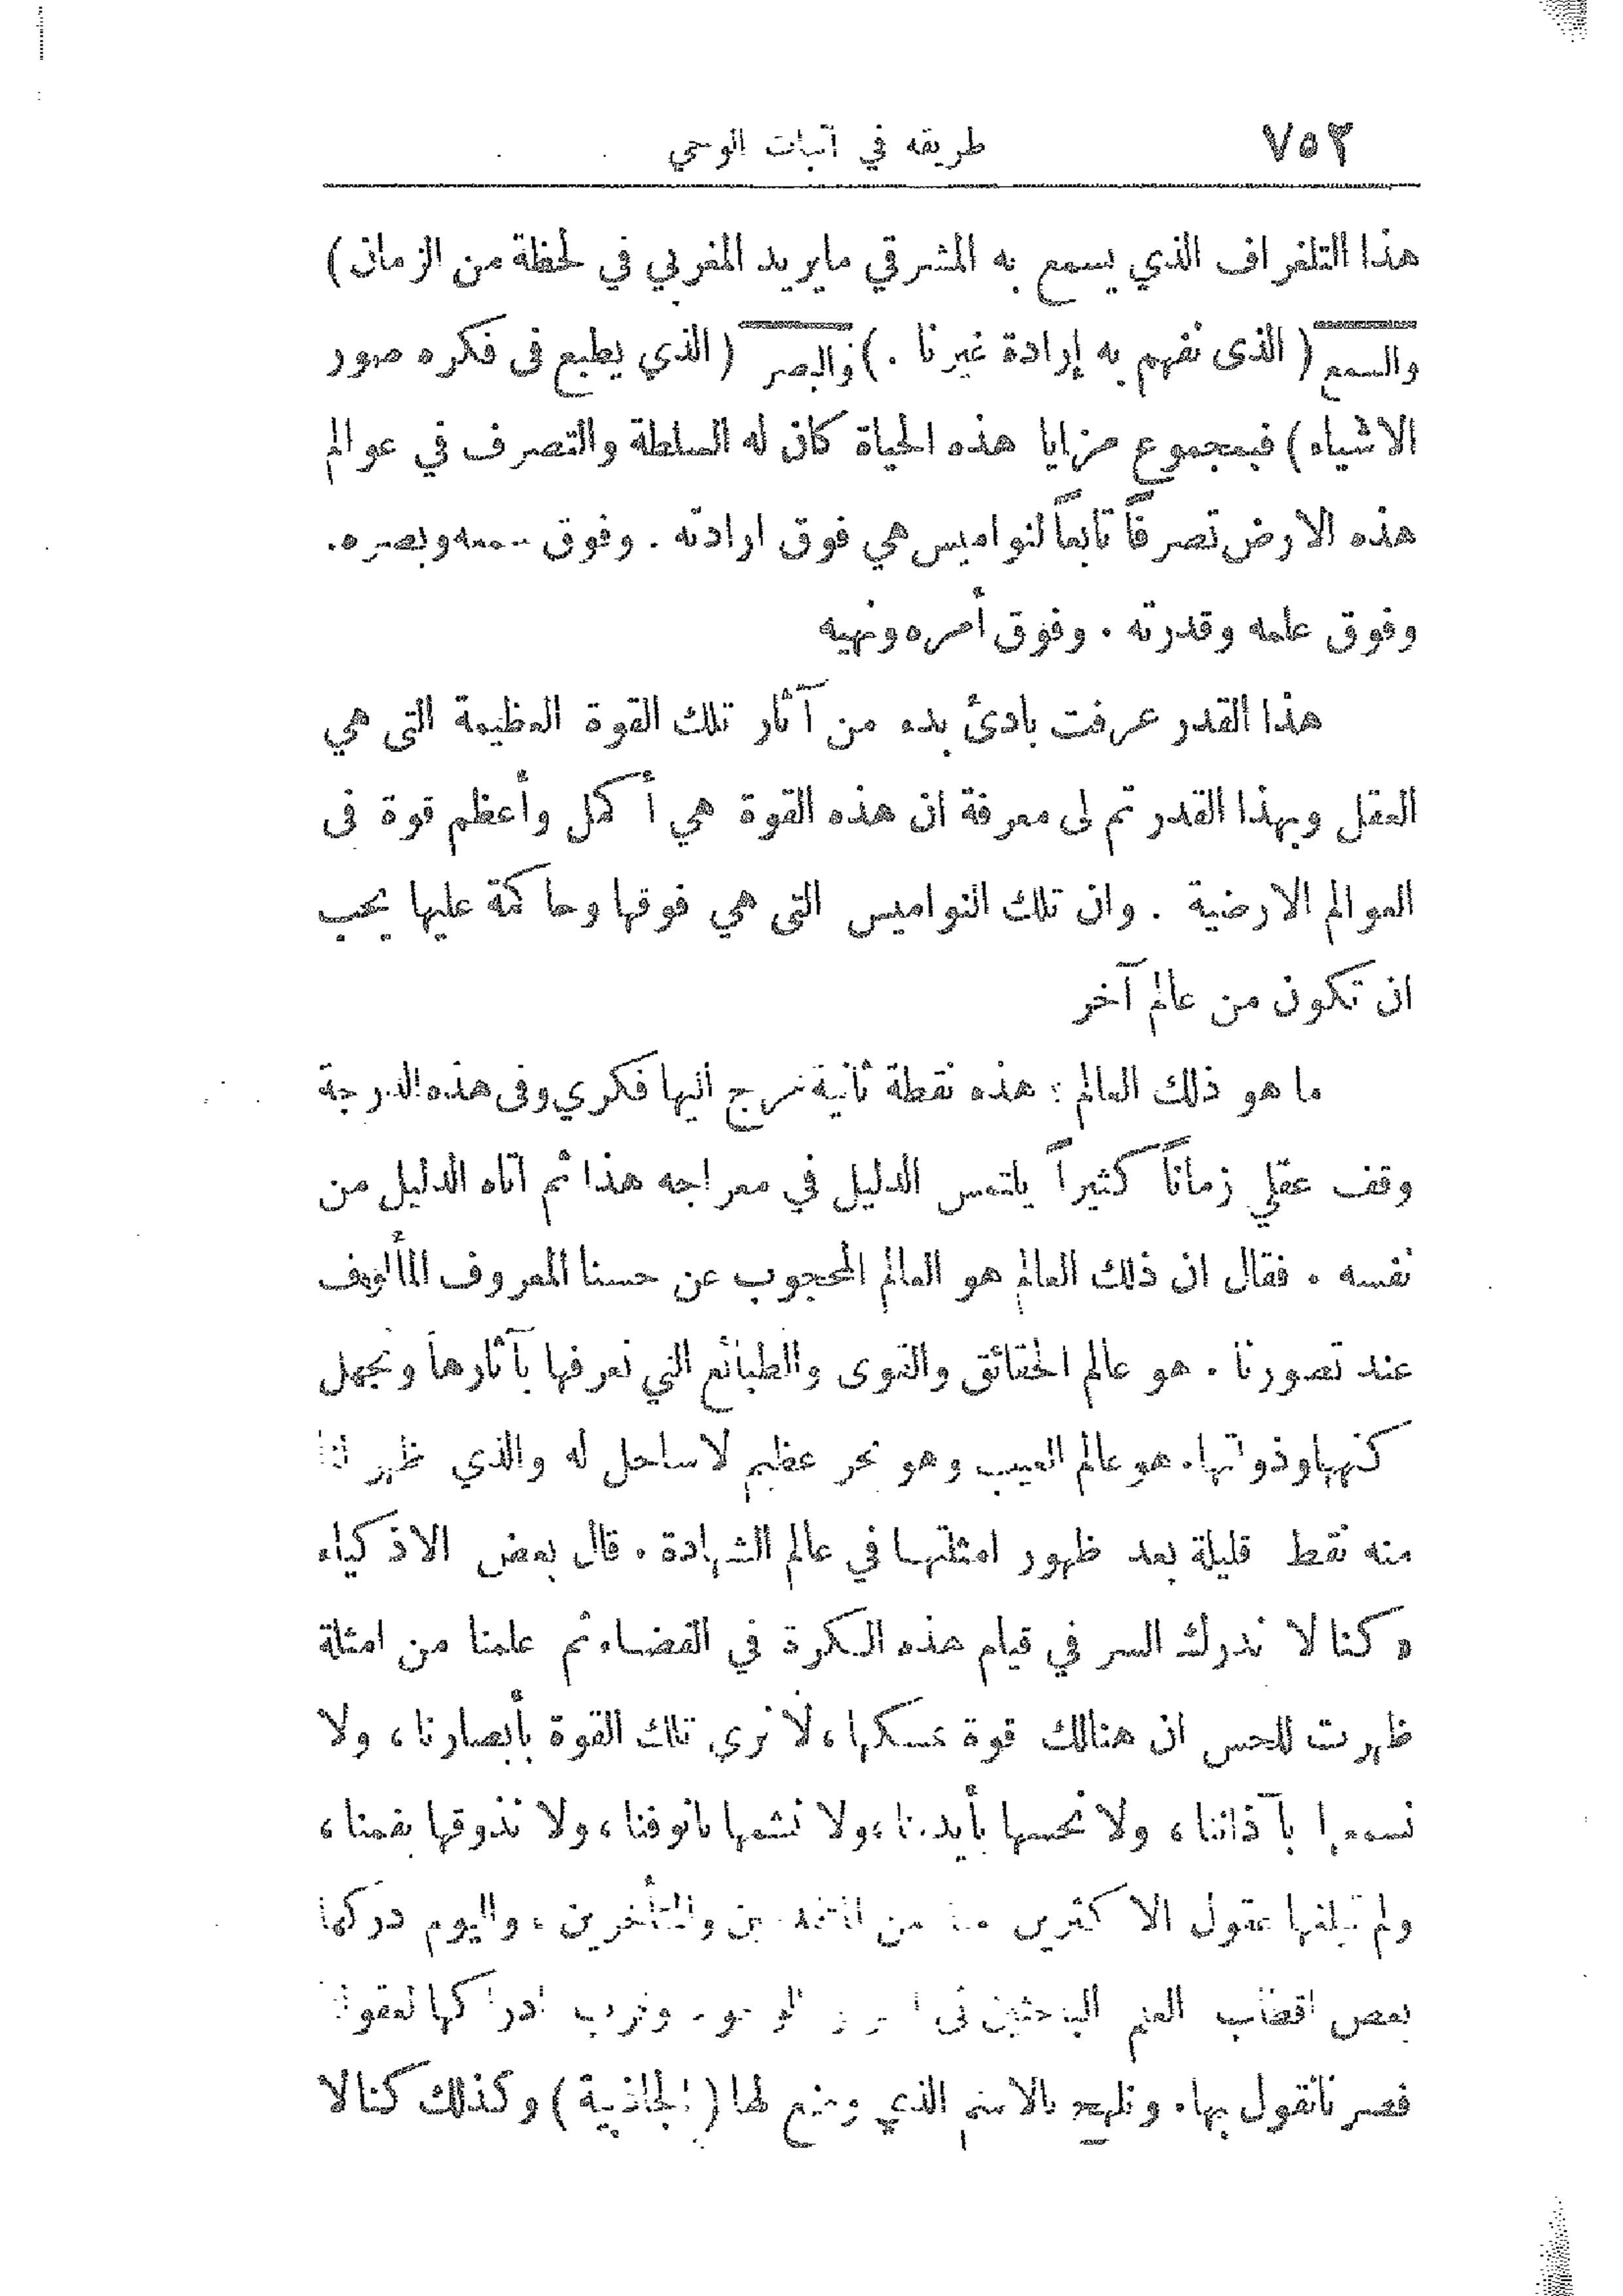 ٧٥٢ طريقه في اثبات الوحي
هذا التلغراف الذي يسمع به المشرقي مايريد المغربي في لحظة من الزمان)
والسمع (الذى نفهم به إرادة غيرنا .) والبصر (الذي يطبع فى فكره صور
الاشياء) فبمجموع مزايا هذه الحياة كان له السلطة والتصرف في عوالم
هذه الارض تصرفاً تابعاً لنواميس هي فوق ارادته . وفوق سمعه وبصره.
وفوق علمه وقدرته . وفوق أمره ونهيه
هذا القدر عرفت بادئ بدء من آثار تلك القوة العظيمة التى هي
العقل وبهذا القدر تم لى معرفة ان هذه القوة هي أكمل وأعظم قوة فى
العوالم الارضية . وان تلك النواميس التى هي فوقها وحاكمة عليها يجب
ان تكون من عالم آخر
ما هو ذلك العالم : هذه نقطة ثانية عرج اليها فكري وفى هذه الدرجة
وقف عقلي زماناً كثيراً يلتمس الدليل في معراجه هذا ثم اتاه الدليل من
نفسه . فقال ان ذلك العالم هو العالم المحجوب عن حسنا المعروف المألوف
عند تصورنا . هو عالم الحقائق والقوى والطبائع التي نعرفها بآثارها ونجهل
كنهها وذوتها. هو عالم الغيب وهو بحر عظيم لا ساحل له والذي ظهر لنا
منه نقط قليلة بعد ظهور امثلتها في عالم الشهادة . قال بعض الاذكياء
« كنا لا ندرك السر في قيام هذه الكرة في الفضاء ثم علمنا من امثلة
ظهرت للحس ان هنالك قوة تمسكها، لا نري تلك القوة بأبصارنا، ولا
نسمعها بآذاننا، ولا نحسها بأيدينا، ولا نشمها بانوفنا، ولا نذوقها بفمنا،
ولم تبلغها عقول الاكثرين منا من المتقدمين والمتأخرين، واليوم دركها
بعض اقطاب العلم الباحثين فى وقرب ادراكها لعقولنا
فصرنا نقول بها. ونلهج بالاسم الذي وضع لها (الجاذبية) وكذلك كنا لا